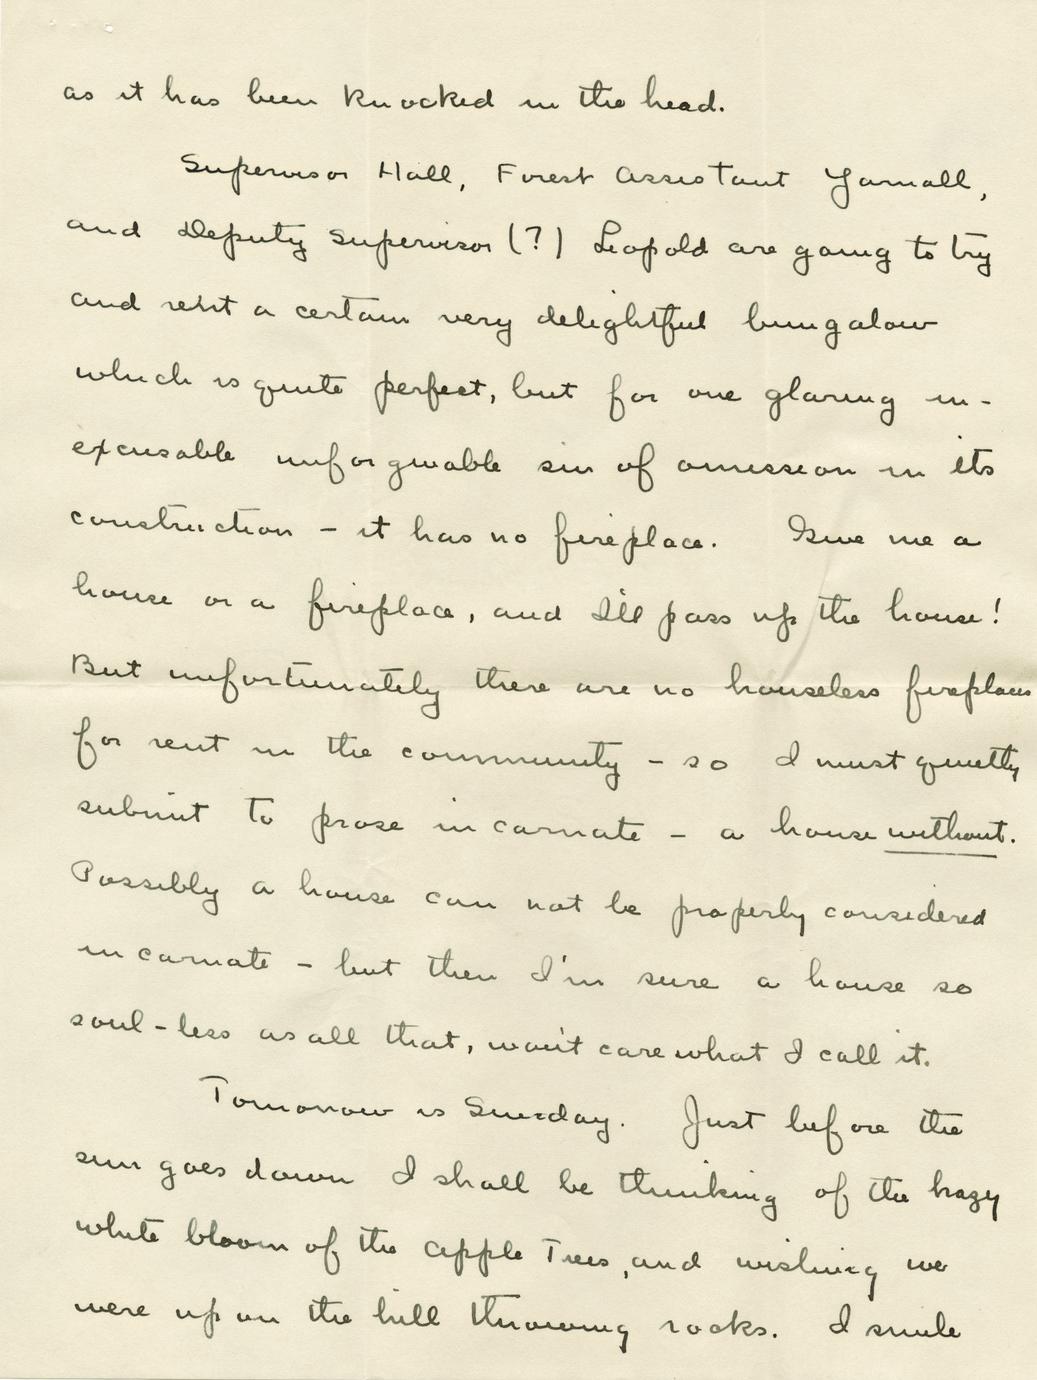 as it has been knocked in the head.
Supervisor Hall, Forest Assistant Yarnall,
and Deputy Supervisor (?) Leopold are going to try
and rent a certain very delightful bungalow
which is quite perfect, but for one glaring in-
excusable unforgivable sin of omission in its
construction – it has no fireplace. Give me a
house or a fireplace, and I'll pass up the house!
But unfortunately there are no houseless fireplaces
for rent in the community – so I must quietly
submit to prose incarnate – a house without.
Possibly a house can not be properly considered
incarnate – but then I'm sure a house so
soul-less as all that, won't care what I call it.
Tomorrow is Sunday. Just before the
sun goes down I shall be thinking of the hazy
white bloom of the apple trees, and wishing we
were up on the hill throwing rocks. I smile